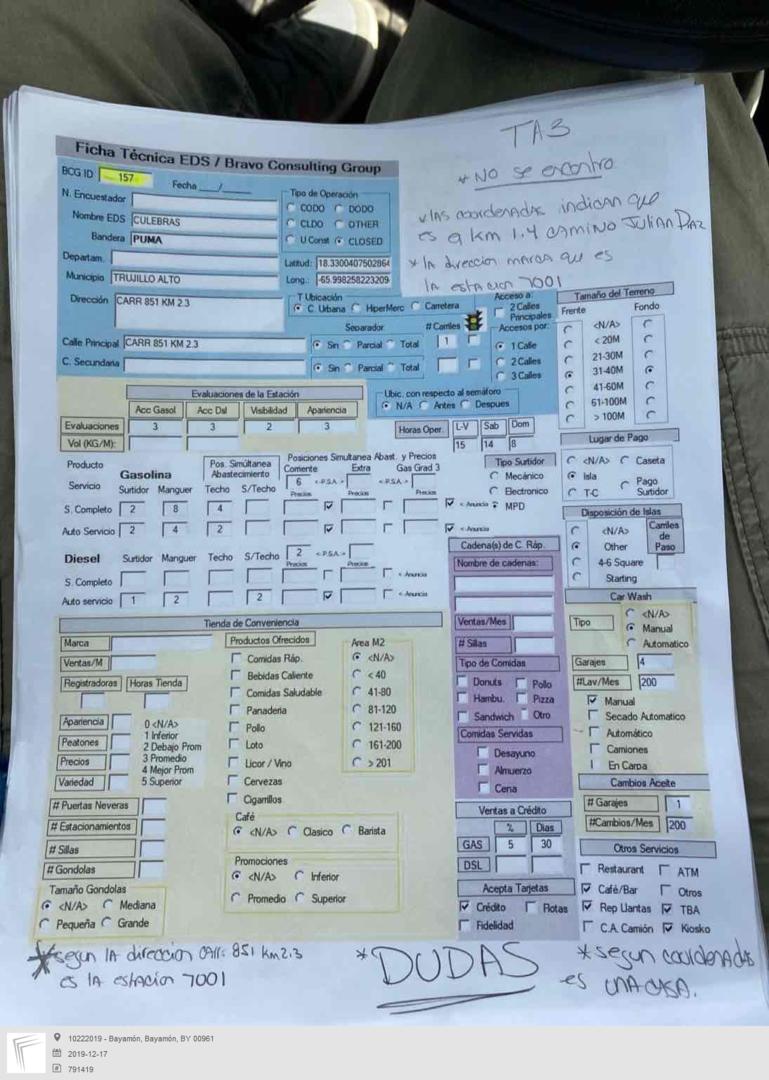 TA3
* NO se encontro
Ficha Técnica EDS / Bravo Consulting Group
BCG ID 157
Fecha ___/___
* las coordenadas indican que
es a km 1.4 CAMINO JULIAN DIAZ
* la direccion marca que es
la estacion 7001
N. Encuestador
Nombre EDS CULEBRAS
Bandera PUMA
Departam.
Municipio TRUJILLO ALTO
Dirección CARR 851 KM 2.3
Calle Principal CARR 851 KM 2.3
C. Secundaria
Tipo de Operación
CODO DODO
CLDO OTHER
U Const CLOSED
Latitud: 18.3300407502864
Long.: -65.998258223209
T Ubicación
C. Urbana HiperMerc Carretera
Separador # Carriles
Sin Parcial Total 1
Sin Parcial Total
Acceso a:
2 Calles
Principales
Accesos por:
1 Calle
2 Calles
3 Calles
Ubic. con respecto al semáforo
N/A Antes Despues
Tamaño del Terreno
Frente Fondo
<N/A>
< 20M
21-30M
31-40M
41-60M
61-100M
> 100M
Evaluaciones de la Estación
Acc Gasol Acc Dsl Visibilidad Apariencia
Evaluaciones 3 3 2 3
Vol (KG/M):
Horas Oper. L-V Sab Dom
15 14 8
Lugar de Pago
<N/A> Caseta
Isla Pago
T-C Surtidor
Producto
Servicio Gasolina
Pos. Simúltanea
Abastecimiento
Posiciones Simultanea Abast. y Precios
Corriente Extra Gas Grad 3
6 <-P.S.A.-> <-P.S.A.->
Surtidor Manguer Techo S/Techo Precios Precios Precios
S. Completo 2 8 4 < Anuncio
Auto Servicio 2 4 2 < Anuncio
Tipo Surtidor
Mecánico
Electronico
MPD
Disposición de Islas
<N/A>
Other
4-6 Square
Starting
Carriles
de
Paso
Diesel Surtidor Manguer Techo S/Techo 2 <-P.S.A.->
Precios Precios
S. Completo < Anuncio
Auto servicio 1 2 2 < Anuncio
Cadena(s) de C. Ráp.
Nombre de cadenas:
Ventas/Mes
# Sillas
Tipo de Comidas
Donuts Pollo
Hambu. Pizza
Sandwich Otro
Comidas Servidas
Desayuno
Almuerzo
Cena
Car Wash
Tipo <N/A>
Manual
Automatico
Garajes 4
#Lav/Mes 200
Manual
Secado Automatico
Automático
Camiones
En Carpa
Cambios Aceite
# Garajes 1
#Cambios/Mes 200
Tienda de Conveniencia
Marca
Ventas/M
Registradoras Horas Tienda
Apariencia
Peatones
Precios
Variedad
0 <N/A>
1 Inferior
2 Debajo Prom
3 Promedio
4 Mejor Prom
5 Superior
# Puertas Neveras
# Estacionamientos
# Sillas
# Gondolas
Tamaño Gondolas
<N/A> Mediana
Pequeña Grande
Productos Ofrecidos
Comidas Ráp.
Bebidas Caliente
Comidas Saludable
Panaderia
Pollo
Loto
Licor / Vino
Cervezas
Cigarrillos
Area M2
<N/A>
< 40
41-80
81-120
121-160
161-200
> 201
Café
<N/A> Clasico Barista
Promociones
<N/A> Inferior
Promedio Superior
Ventas a Crédito
% Dias
GAS 5 30
DSL
Acepta Tarjetas
Crédito Flotas
Fidelidad
Otros Servicios
Restaurant ATM
Café/Bar Otros
Rep Llantas TBA
C.A. Camión Kiosko
* segun la direccion carr. 851 km 2.3
es la estacion 7001
* DUDAS
* segun coordenadas
es una casa.
10222019 - Bayamón, Bayamón, BY 00961
2019-12-17
# 791419